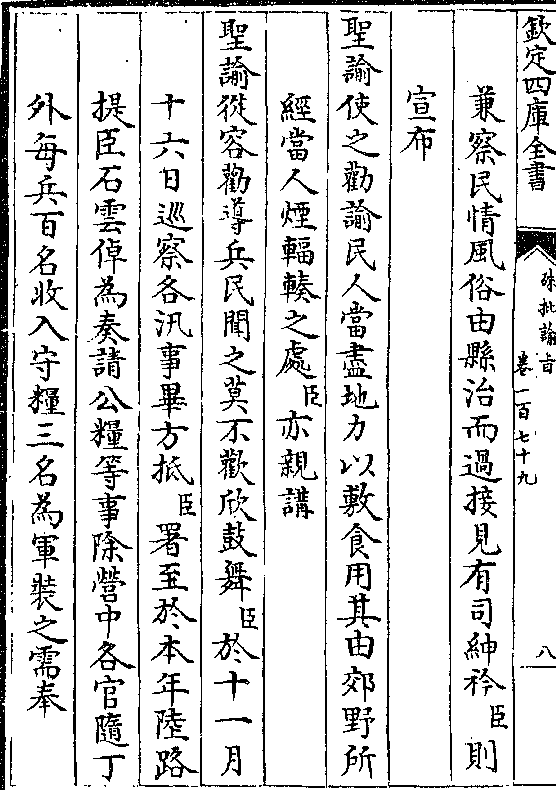 欽定四庫全書
硃批諭旨
卷一百七十九
八
兼察民情風俗由縣治而過接見有司紳衿臣則
宣布
聖諭使之勸諭民人當盡地力以敷食用其由郊野所
經當人煙輻輳之處臣亦親講
聖諭從容勸導兵民聞之莫不歡欣鼓舞臣於十一月
十六日巡察各汛事畢方抵臣署至於本年陸路
提臣石雲倬為奏請公糧等事除營中各官隨丁
外每兵百名收入守糧三名為軍裝之需奉